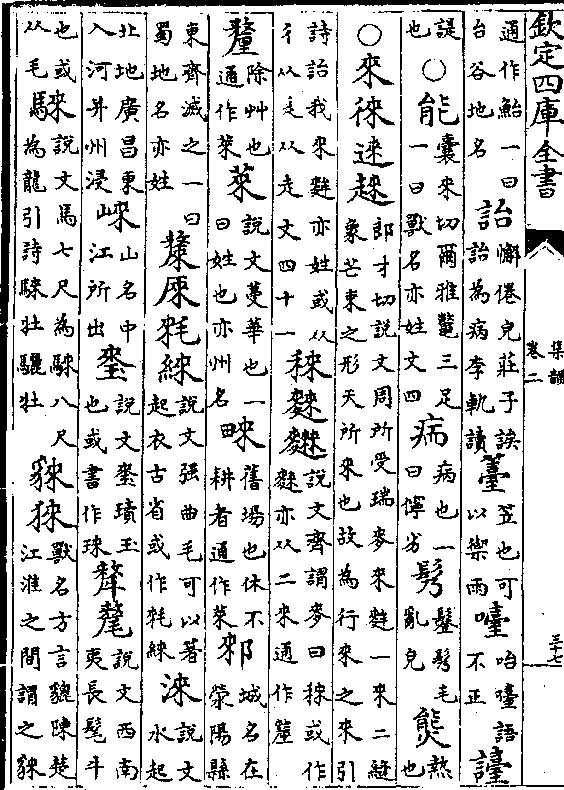 欽定四庫全書
集韻
卷二
三十七
通作鮐一曰
台谷地名
詒
懈倦皃莊子誒
詒為病李軌讀
薹
笠也可
以禦雨
嚔
咍嚔語
不正
諟
也
○能
囊來切爾雅鼈三足
一曰獸名亦姓文四
病也一
曰儜劣
毛
亂皃
熊
熱
也
○來徠逨䋱
郎才切說文周所受瑞麥來麰一來二縫
象芒朿之形天所來也故為行來之來引
詩詒我來麰亦姓或从
彳从辵从走文四十一
䅘麳
說文齊謂麥曰䅘或作
麳亦从二來通作釐
釐
除艸也
通作萊
萊
說文蔓華也一
曰姓也亦州名
𤱜
舊場也休不
耕者通作萊
郲
城名在
滎陽縣
東齊滅之一曰
蜀地名亦姓
斄庲𣮉綀
說文强曲毛可以著
起衣古省或作𣮉綀
淶
說文
水起
北地廣昌東
入河并州浸
崍
山名中
江所出
㻺
說文㻺瓄玉
也或書作琜
犛氂
說文西南
夷長髦牛
也或
从毛
騋
說文馬七尺為騋八尺
為龍引詩騋牡驪牡
𧳟猍
獸名方言貔陳楚
江淮之間謂之𧳟